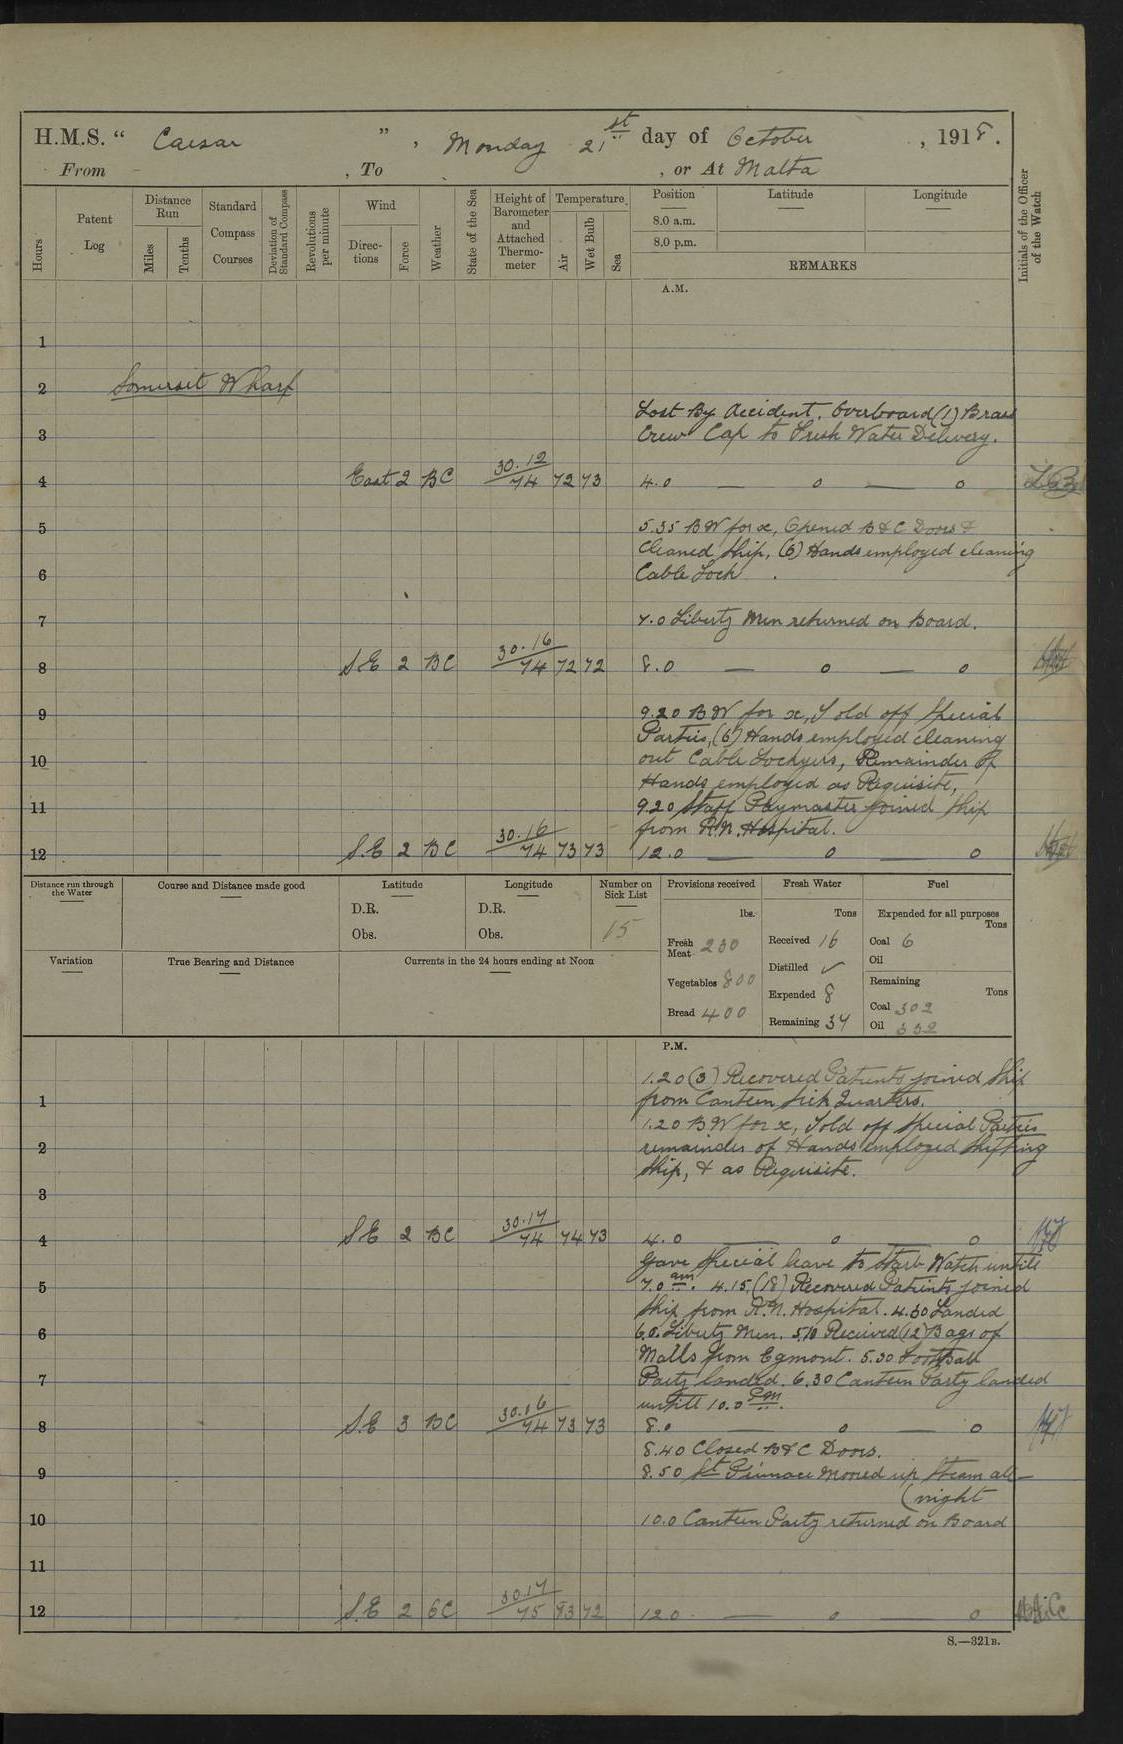 H.M.S. “ Caesar ” , Monday 21st day of October , 1918 .
From , To , or At Malta
Initials of the Officer of the Watch
Hours
Patent Log
Distance Run
Miles
Tenths
Standard Compass Courses
Deviation of Standard Compass
Revolutions per minute
Wind
Directions
Force
Weather
State of the Sea
Height of Barometer and Attached Thermometer
Temperature.
Air
Wet Bulb
Sea
Position
Latitude
Longitude
8.0 a.m.
8.0 p.m.
REMARKS
A.M.
1
2 Somerset Wharf
Lost By Accident. Overboard (1) Brass
3 Crew Cap to Fresh Water Delivery.
4 East 2 BC 30.12 74 72 73 4.0 — o — o
5 5.35 BW for x, Opened B & C Doors &
Cleaned Ship, (6) Hands employed cleaning
6 Cable Lock .
7 7.0 Liberty Men returned on Board.
8 S.E 2 BC 30.16 74 72 72 8.0 — o — o
9 9.20 BW for x, Told off Special
Parties, (6) Hands employed cleaning
10 out Cable Lockyers, Remainder of
Hands employed as Requisite,
11 9.20 Staff Paymaster joined Ship
from R.N. Hospital.
12 S.E 2 BC 30.16 74 73 73 12.0 — o — o
Distance run through the Water
Course and Distance made good
Latitude
D.R.
Obs.
Longitude
D.R.
Obs.
Number on Sick List
15
Provisions received
lbs.
Fresh Meat 230
Vegetables 800
Bread 400
Fresh Water
Tons
Received 16
Distilled ✓
Expended 8
Remaining 34
Fuel
Expended for all purposes
Tons
Coal 6
Oil
Remaining
Tons
Coal 302
Oil 332
Variation
True Bearing and Distance
Currents in the 24 hours ending at Noon
P.M.
1.20 (3) Recovered Patients joined Ship
1 from Canteen Sick Quarters.
1.20 BW for x, Told off Special Parties
2 remainder of Hands employed Shifting
Ship, & as Requisite.
3
4 S.E 2 BC 30.17 74 74 73 4.0 — o — o
Gave Special leave to Starb Watch untill
5 7.0 am. 4.15 (18) Recovered Patients joined
Ship from R.N. Hospital. 4.30 Landed
6 6.0. Liberty Men. 5.10 Received (12) Bags of
Malls from Egmont. 5.30 Football
7 Party landed. 6.30 Canteen Party landed
untill 10.0 P.M.
8 S.E 3 BC 30.16 74 73 73 8.0 — o — o
8.40 Closed B & C Doors.
9 8.50 St. Pinnace Moored up Steam all
(night
10 10.0 Canteen Party returned on Board
11
12 S.E 2 6C 30.17 75 73 72 12.0 — o — o
S.—321B.